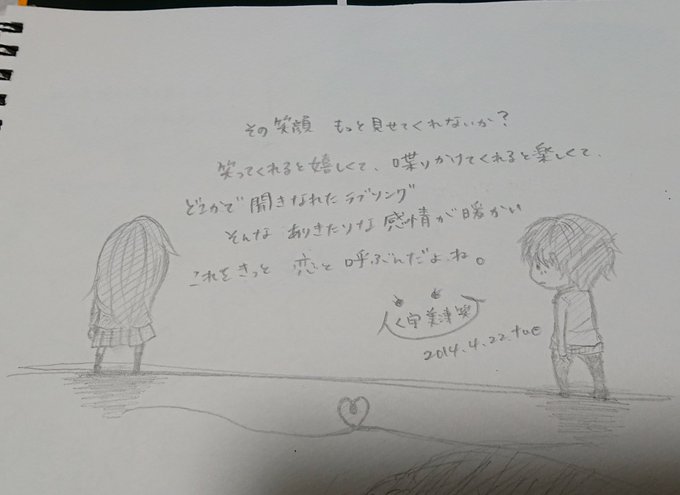 その笑顔 もっと見せてくれないか?
笑ってくれると嬉しくて、喋りかけてくれると楽しくて、
どこかで聞きなれたラブソング
そんな ありきたりな感情が暖かい
これをきっと 恋と呼ぶんだよね。
2014.4.22.tue